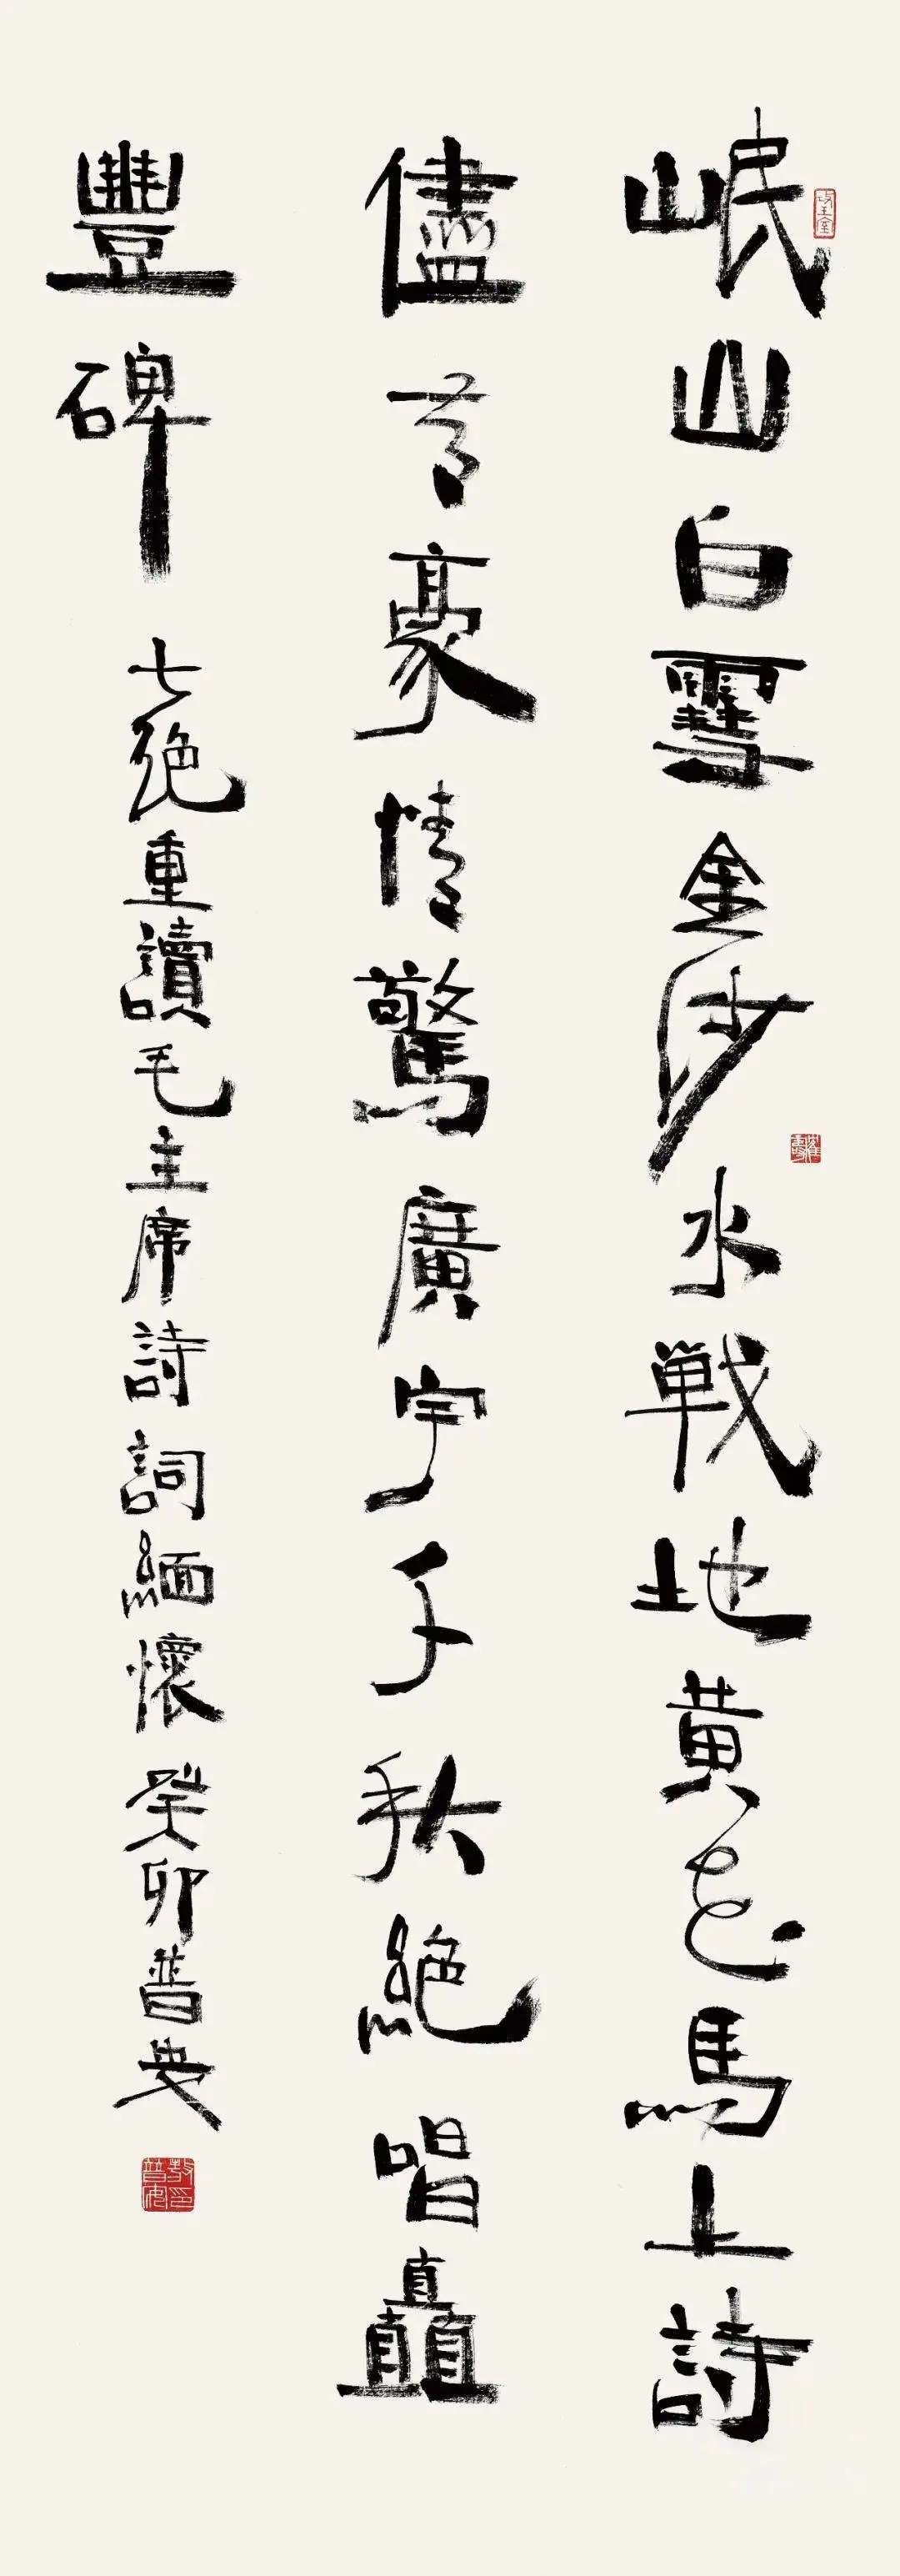 岷山白雪金沙水戰地黄花馬上詩
儘豪情驚廣宇千秋絶唱矗
豐碑
七絶重讀毛主席詩詞緬懷 癸卯普安